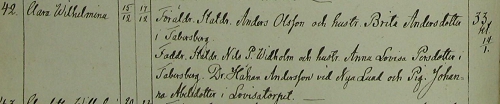 42. Clara Wilhelmina 15/12 17/12 Föräldr. Statdr. Anders Olsson och hustr. Brita Andersdotter 33
i Taborsberg.
Faddr. Statdr. Nils P. Widholm och hustr. Anna Lovisa Persdotter i 14.
Taborsberg. Dr. Håkan Andersson vid Nya Lund och Pig. Johan- 1.
na Abelsdotter i Lovisatorpet.